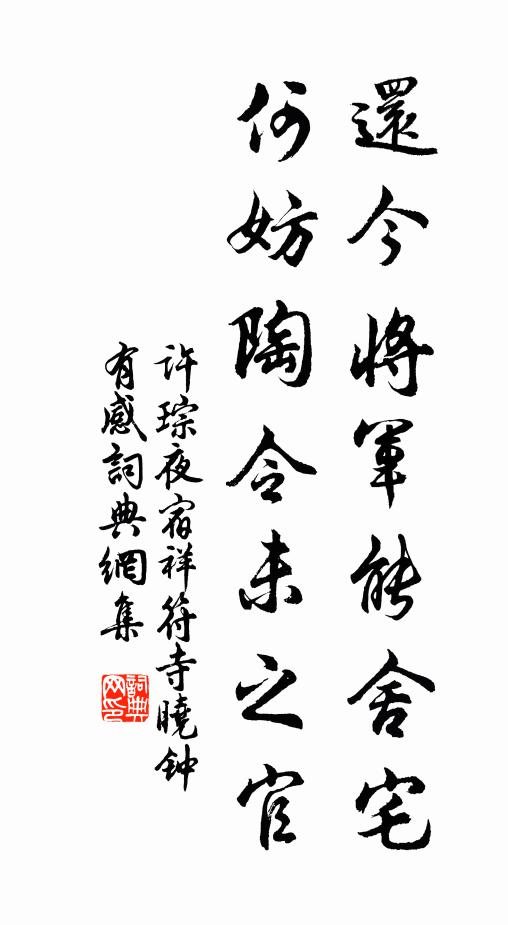 還今將軍能舍宅
何妨陶令未之官
許琮夜宿祥符寺曉钟
有感詞典網集
詞典
网印